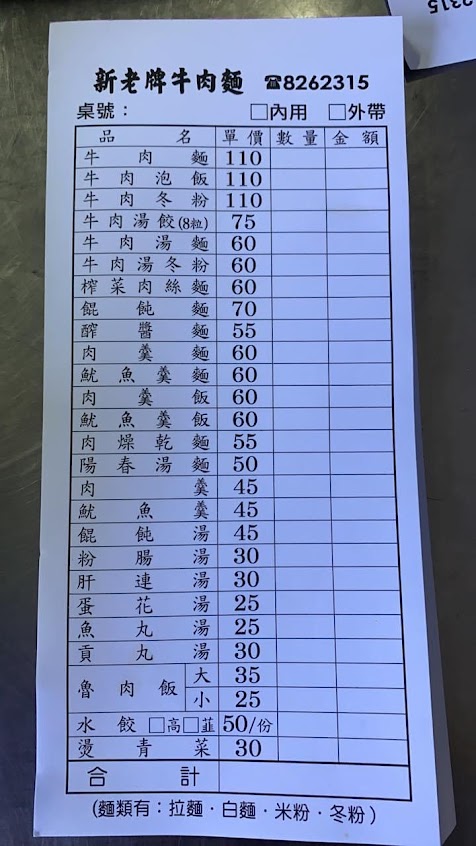 2315
新老牌牛肉麵 ☎8262315
桌號： □內用 □外帶
品名 單價 數量 金額
牛肉麵 110
牛肉泡飯 110
牛肉冬粉 110
牛肉湯餃(8粒) 75
牛肉湯麵 60
牛肉湯冬粉 60
榨菜肉絲麵 60
餛飩麵 70
醡醬麵 55
肉羹麵 60
魷魚羹麵 60
肉羹飯 60
魷魚羹飯 60
肉燥乾麵 55
陽春湯麵 50
肉羹 45
魷魚羹 45
餛飩湯 45
粉腸湯 30
肝連湯 30
蛋花湯 25
魚丸湯 25
貢丸湯 30
魯肉飯 大 35
小 25
水餃 □高□韮 50/份
燙青菜 30
合計
(麵類有：拉麵·白麵·米粉·冬粉)